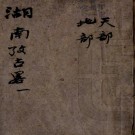 天部
地部
湖南攷古畧一